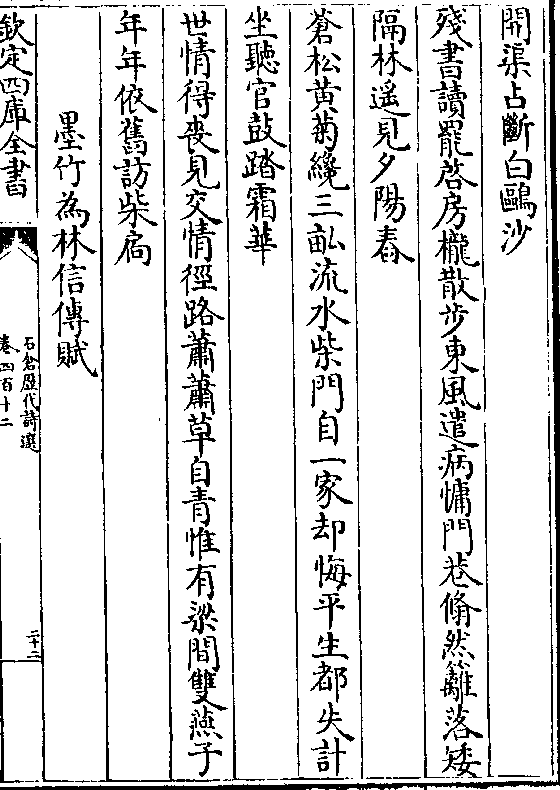 開渠占斷白鷗沙
殘書讀罷啓房櫳散步東風遣病慵門巷翛然籬落矮
隔林遥見夕陽舂
蒼松黄菊纔三畝流水柴門自一家却悔平生都失計
坐聽官鼓踏霜華
世情得喪見交情徑路蕭蕭草自青惟有梁間雙燕子
年年依舊訪柴扃
墨竹為林信傳賦
欽定四庫全書
石倉歷代詩選
卷四百十二
二十二